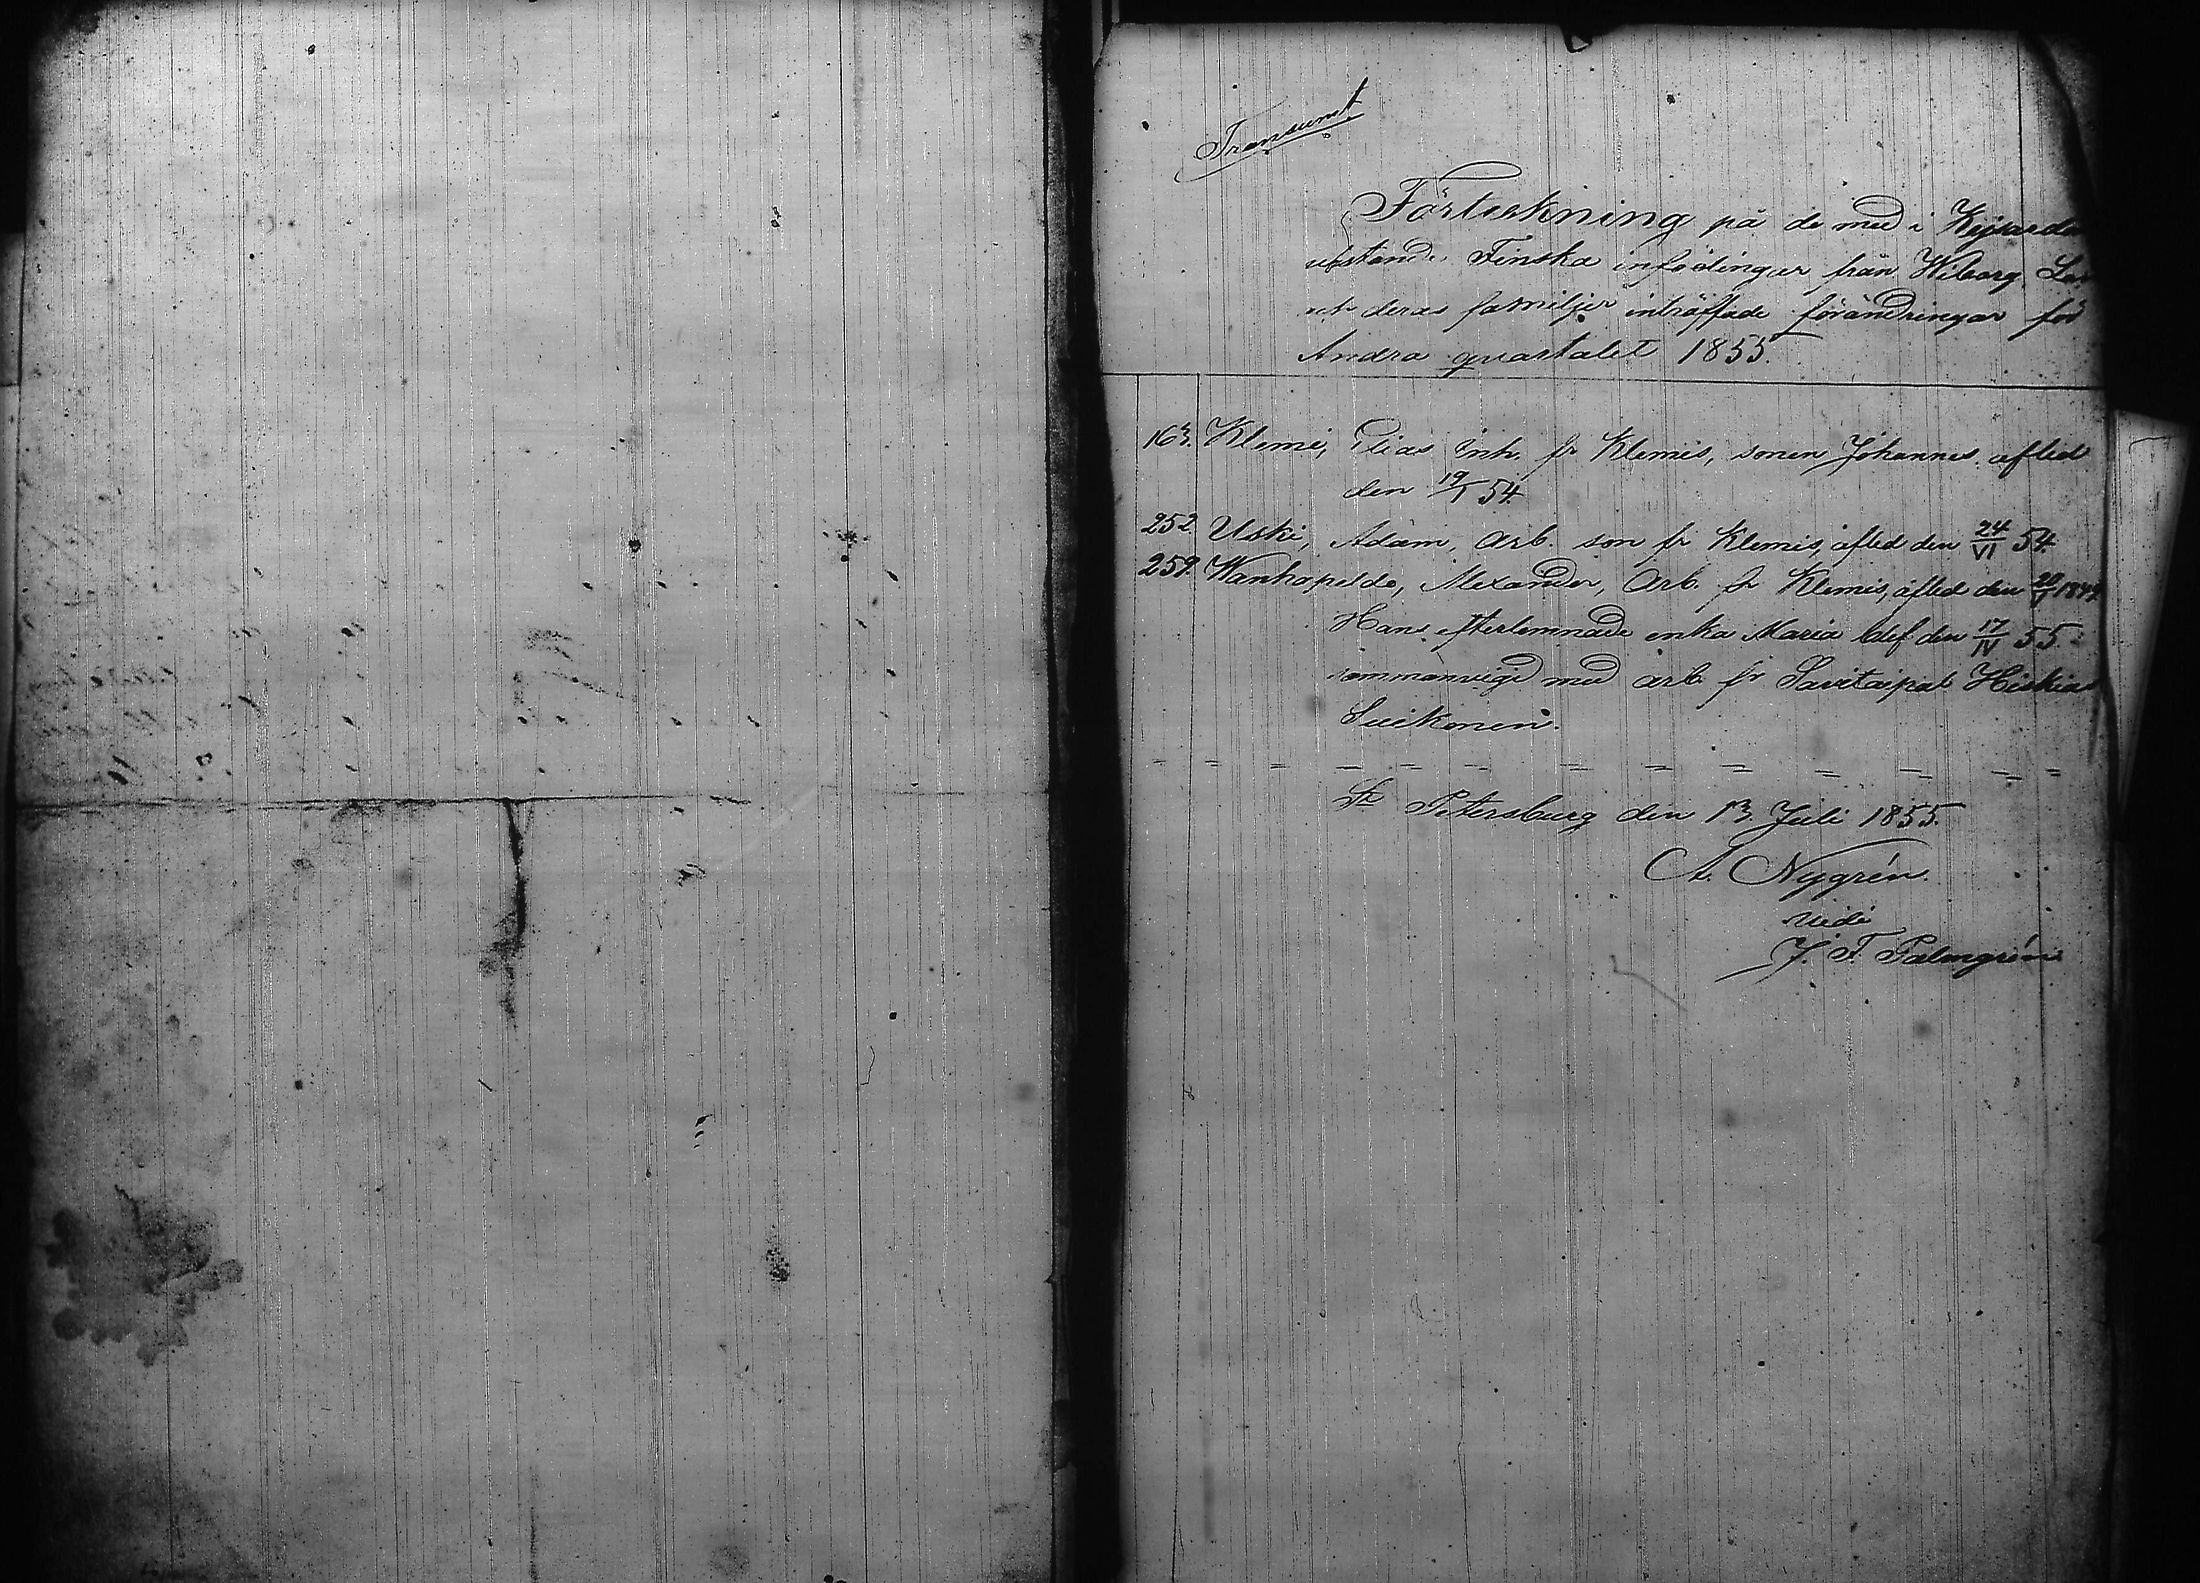 Transumt
Förteckning på de med i Kejsarde
utestånde Finska infödingar från Wiborg Län
och deras familjer inträffade förändringar för
Andra quartalet 1855.
163. Klemi, Elias Inh. fr Klemis, sonen Johannes afled
den 19/I 54.
252. Uski, Adam, Arb. son fr Klemis, afled den 24/VI 54.
259. Wanhapelde, Alexander, Arb. fr Klemis, afled den 20/V
Hans efterlemnade enka Maria blef den 17/IV 55.
sammanvigd med arb. fr Savitaipal Hiskias
Suikonen.
St Petersburg den 13 Juli 1855.
A. Nygrén.
Vidi
J. F. Palmgrén